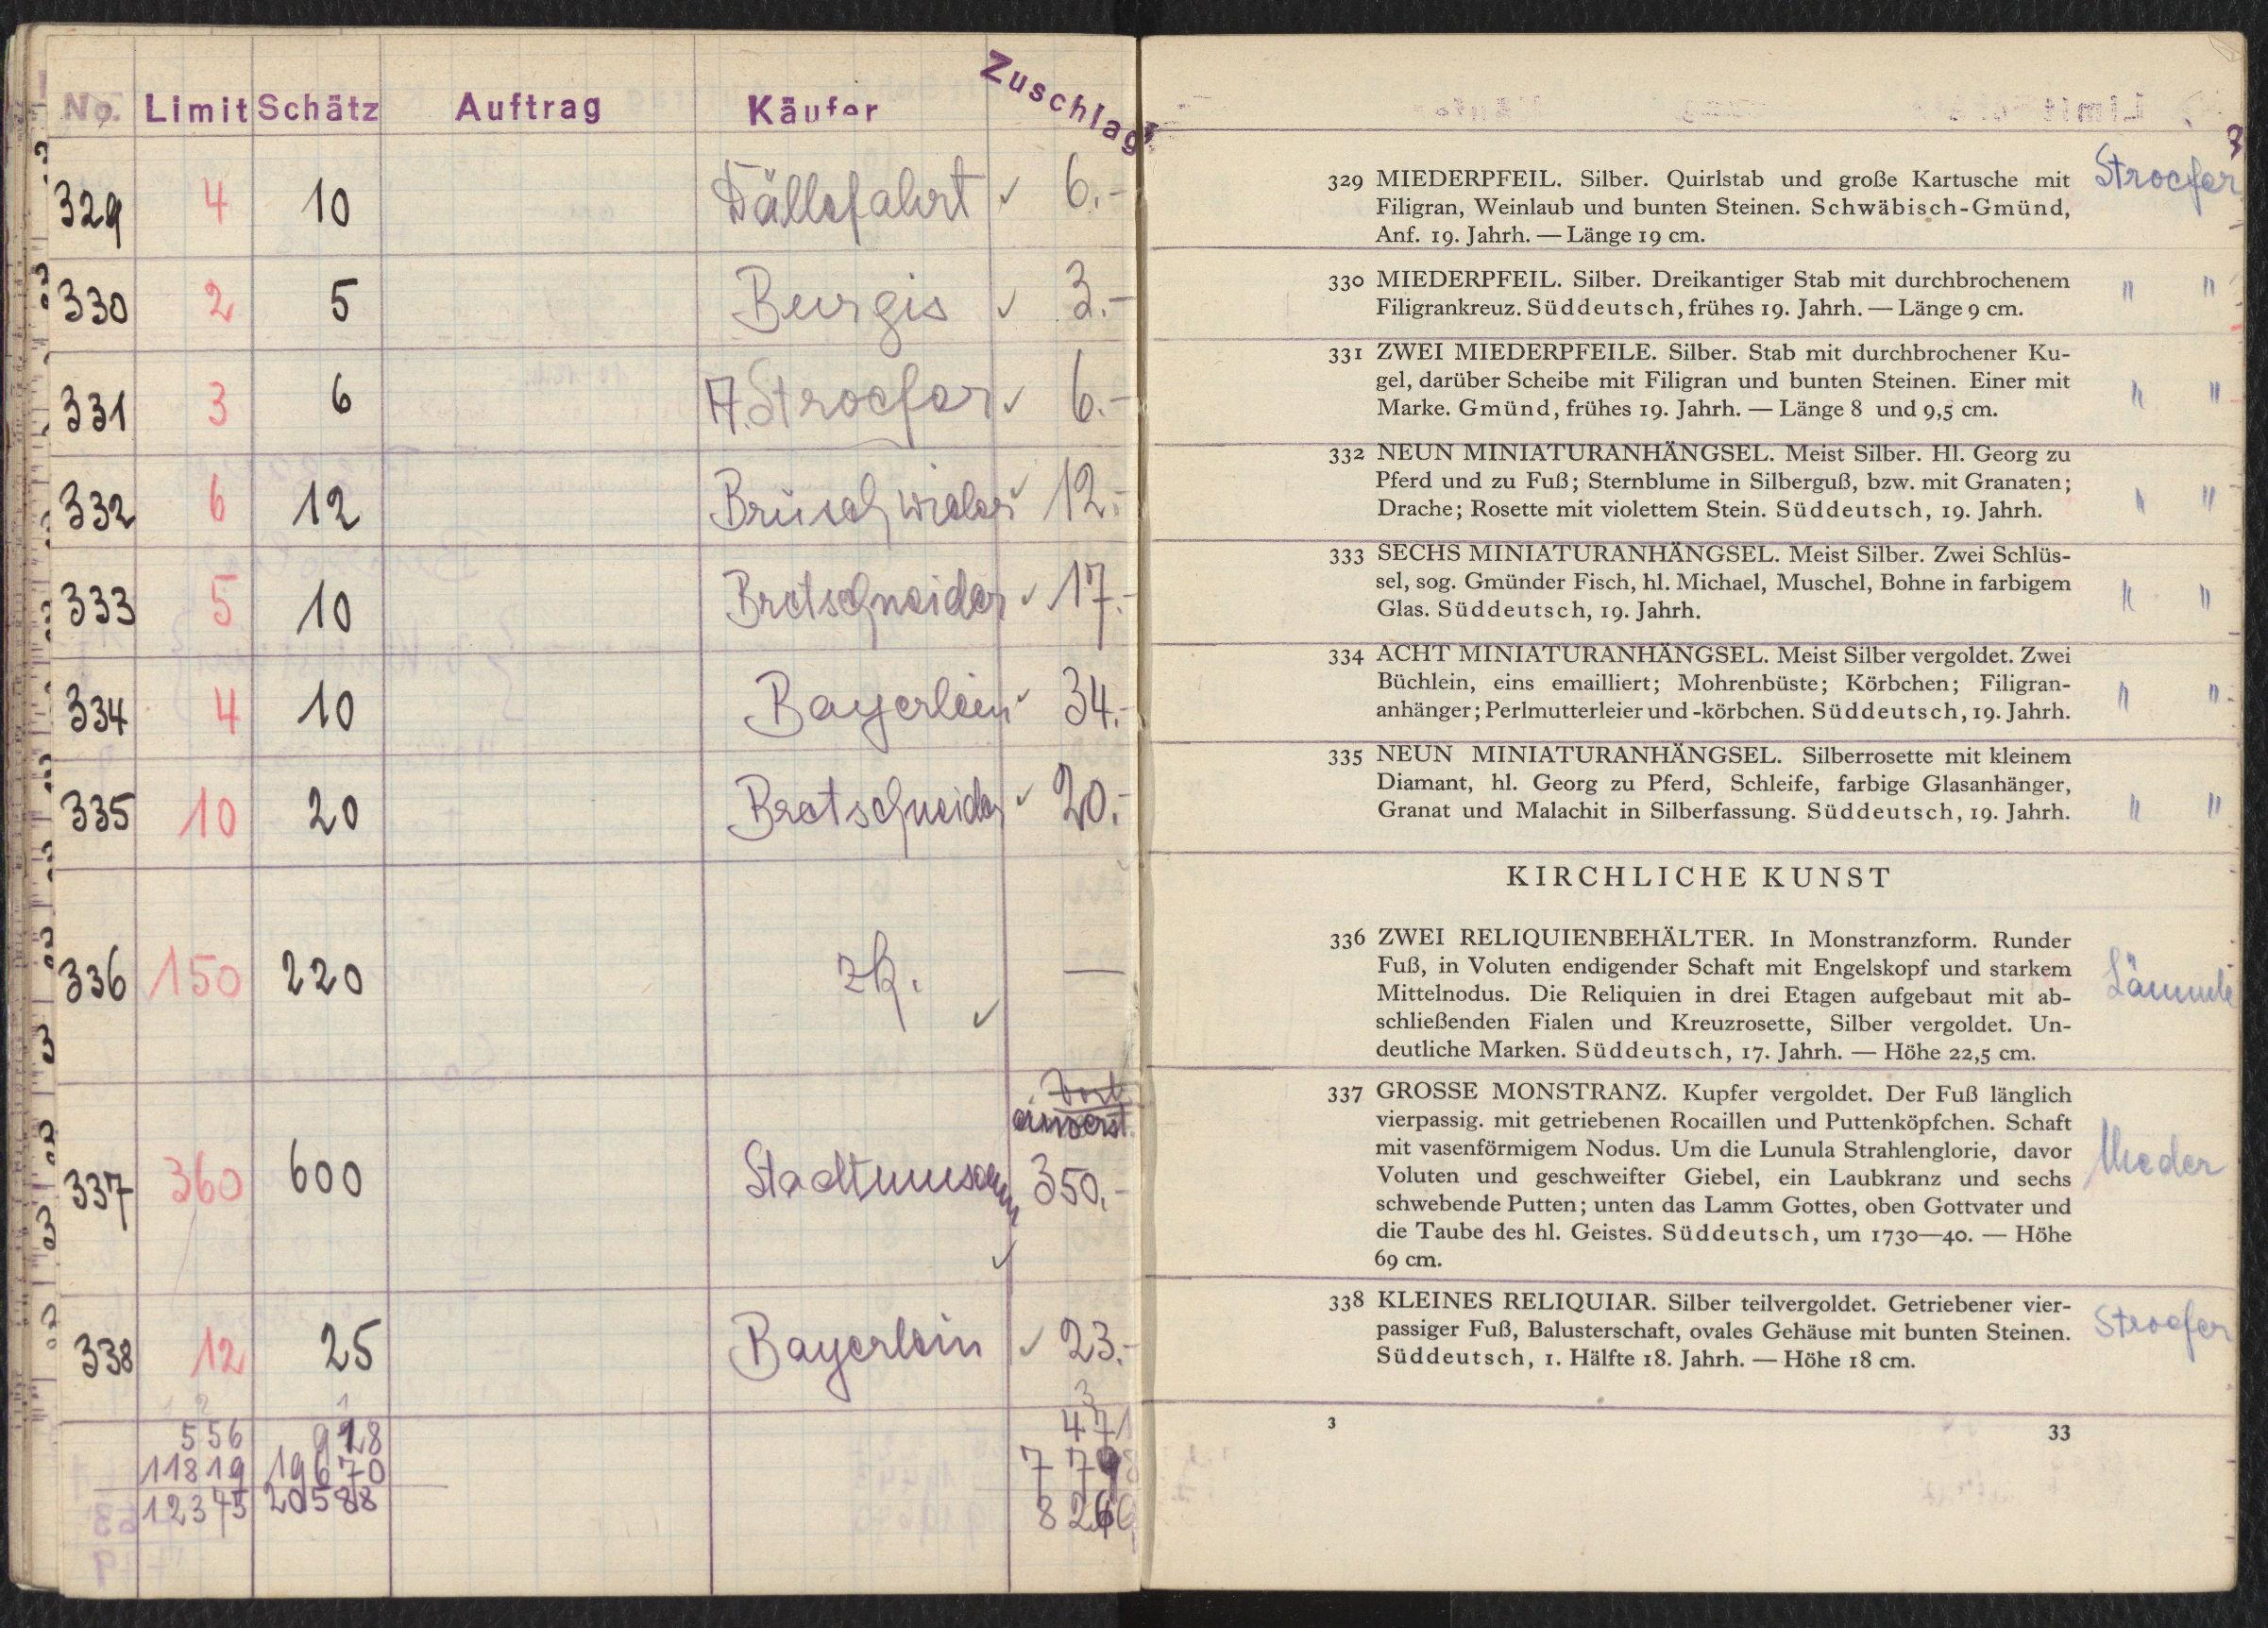 No. Limit Schätz Auftrag Käufer Zuschlag
329 4 10 Dällefahrt ✓ 6.-
330 2 5 Beurgis ✓ 3.-
331 3 6 A. Stroefer ✓ 6.-
332 6 12 Brüschwieler ✓ 12.-
333 5 10 Bretschneider ✓ 17.-
334 4 10 Bayerlein ✓ 34.-
335 10 20 Bretschneider ✓ 20.-
336 150 220 zk. ✓ —
einverst.
337 360 600 Stadtmuseum ✓ 350.-
338 12 25 Bayerlein ✓ 23.-
556 918 471
11819 19670
12345 20588
329 MIEDERPFEIL. Silber. Quirlstab und große Kartusche mit Stroefer
Filigran, Weinlaub und bunten Steinen. Schwäbisch-Gmünd,
Anf. 19. Jahrh. — Länge 19 cm.
330 MIEDERPFEIL. Silber. Dreikantiger Stab mit durchbrochenem " "
Filigrankreuz. Süddeutsch, frühes 19. Jahrh. — Länge 9 cm.
331 ZWEI MIEDERPFEILE. Silber. Stab mit durchbrochener Ku-
gel, darüber Scheibe mit Filigran und bunten Steinen. Einer mit " "
Marke. Gmünd, frühes 19. Jahrh. — Länge 8 und 9,5 cm.
332 NEUN MINIATURANHÄNGSEL. Meist Silber. Hl. Georg zu
Pferd und zu Fuß; Sternblume in Silberguß, bzw. mit Granaten; " "
Drache; Rosette mit violettem Stein. Süddeutsch, 19. Jahrh.
333 SECHS MINIATURANHÄNGSEL. Meist Silber. Zwei Schlüs-
sel, sog. Gmünder Fisch, hl. Michael, Muschel, Bohne in farbigem " "
Glas. Süddeutsch, 19. Jahrh.
334 ACHT MINIATURANHÄNGSEL. Meist Silber vergoldet. Zwei
Büchlein, eins emailliert; Mohrenbüste; Körbchen; Filigran- " "
anhänger; Perlmutterleier und -körbchen. Süddeutsch, 19. Jahrh.
335 NEUN MINIATURANHÄNGSEL. Silberrosette mit kleinem
Diamant, hl. Georg zu Pferd, Schleife, farbige Glasanhänger,
Granat und Malachit in Silberfassung. Süddeutsch, 19. Jahrh. " "
KIRCHLICHE KUNST
336 ZWEI RELIQUIENBEHÄLTER. In Monstranzform. Runder
Fuß, in Voluten endigender Schaft mit Engelskopf und starkem Lämmle
Mittelnodus. Die Reliquien in drei Etagen aufgebaut mit ab-
schließenden Fialen und Kreuzrosette, Silber vergoldet. Un-
deutliche Marken. Süddeutsch, 17. Jahrh. — Höhe 22,5 cm.
337 GROSSE MONSTRANZ. Kupfer vergoldet. Der Fuß länglich
vierpassig. mit getriebenen Rocaillen und Puttenköpfchen. Schaft
mit vasenförmigem Nodus. Um die Lunula Strahlenglorie, davor
Voluten und geschweifter Giebel, ein Laubkranz und sechs
schwebende Putten; unten das Lamm Gottes, oben Gottvater und
die Taube des hl. Geistes. Süddeutsch, um 1730—40. — Höhe
69 cm.
338 KLEINES RELIQUIAR. Silber teilvergoldet. Getriebener vier-
passiger Fuß, Balusterschaft, ovales Gehäuse mit bunten Steinen. Stroefer
Süddeutsch, 1. Hälfte 18. Jahrh. — Höhe 18 cm.
3 33